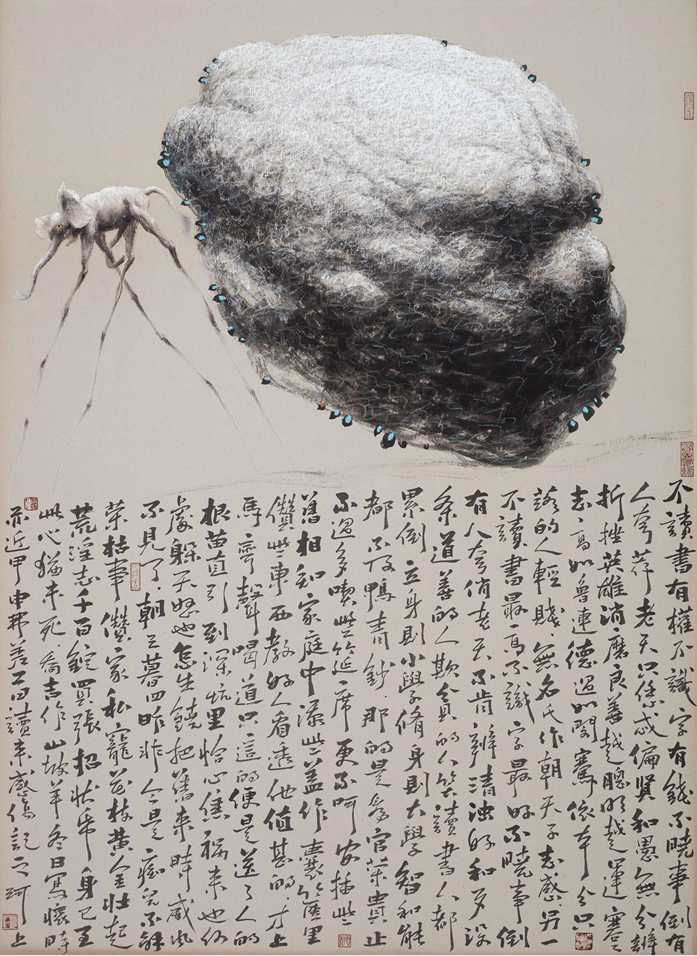 不讀書有權不識字有錢不曉事倒有
人夸荐老天只恁忒偏賢和愚無分辨
折挫英雄消磨良善越聰明越運蹇
志高如魯連德過如閔騫依本分只
落的人輕賤無名氏作朝天子志感另一
不讀書最高不識字最好不曉事倒
有人夸俏老天不肯辨清濁好和歹没
条道善的人欺貧的人笑讀書人都
累倒立身則小學脩身則大學智和能
都不及鴨青鈔那的是為官荣貴止
不過多喫些筵席更不呵安插些
舊相知家庭中添些盖作囊篋里
儹些東西教好人看透他值甚的才上
馬齊聲喝道只這的便是送了人的
根苗直引到深坑里恰心焦禍来也何
處躲天怒也怎生饒把舊来時威風
不見了朝三暮四昨非今是痴兒不解
荣枯事儹家私寵花枝黄金壮起
荒淫志千百錠買張招状帋身已至
此心猶未死喬吉作山坡羊冬日寫懷時
亦近甲申讀来感傷記之珂上